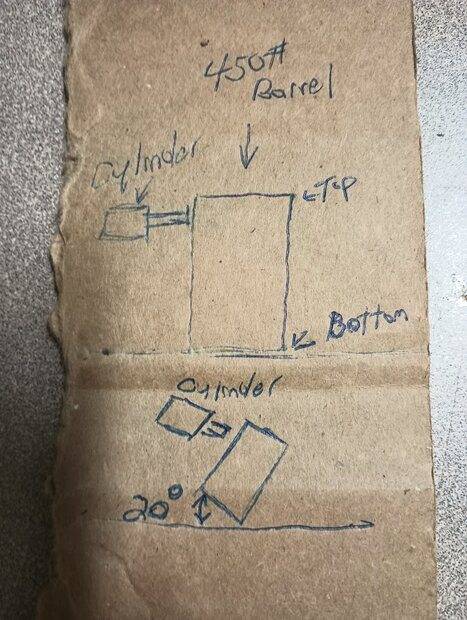 450#
Barrel
Cylinder
Top
Bottom
Cylinder
20°